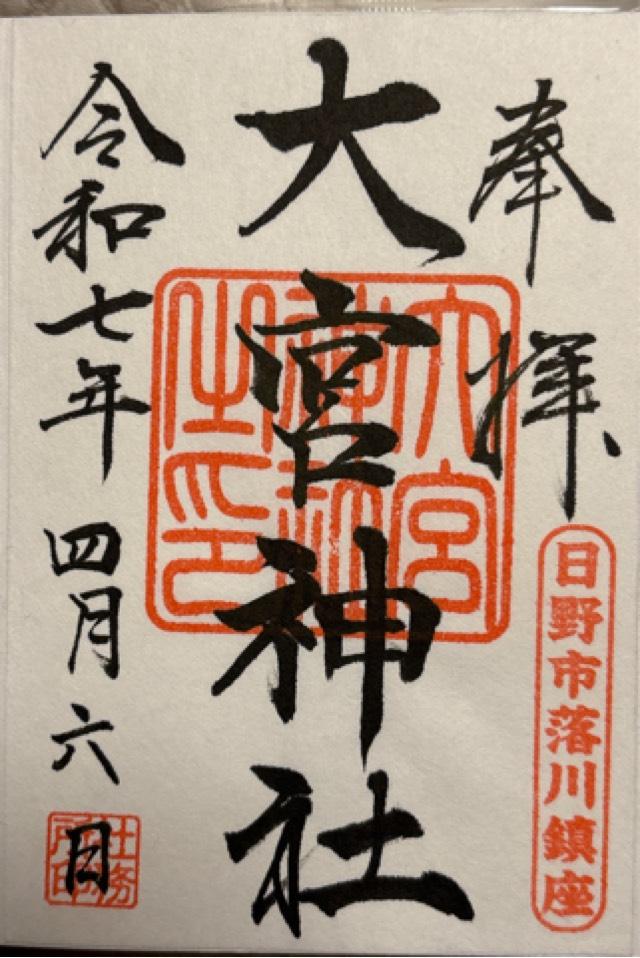 奉拝
日野市落川鎮座
大宮神社
大宮神社之印
令和七年四月六日
社務所印